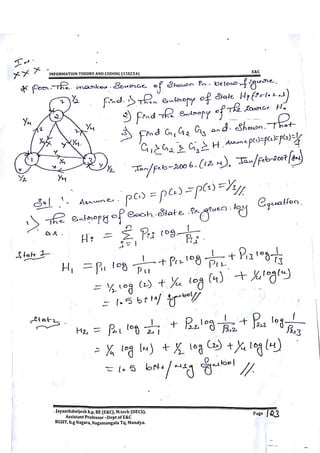 Imp
xxx
INFORMATION THEORY AND CODING (15EC54) E&C
* For The markov Source of Shown in below figure.
Find. 1) Then Entropy of State Hi (i=1,2,3)
2) find the Entropy of The Source H.
3) find G1, G2, G3 and Shown That
G1 ≥ G2 ≥ G3 ≥ H. Assume P(1)=P(2)=P(3)=1/3
Jan/Feb-2006. (12 M), Jan/Feb-2007/8M
Sol :- Assume P(1) = P(2) = P(3) = 1/3 //
1) The Entropy of Each State is given by Equation.
as.
Hi = Σ Pij log 1/Pij
State 1
H1 = P11 log 1/P11 + P12 log 1/P12 + P13 log 1/P13
= 1/2 log (2) + 1/4 log (4) + 1/4 log (4)
= 1.5 bits/symbol //
State 2
H2 = P21 log 1/P21 + P22 log 1/P22 + P23 log 1/P23
= 1/4 log (4) + 1/2 log (2) + 1/4 log (4)
= 1.5 bits/msg Symbol //
Jayanthdwijesh h.p. BE (E&C), M.tech (DECS).
Assistant Professor -Dept of E&C
BGSIT, b.g Nagara, Nagamangala Tq, Mandya.
Page 103